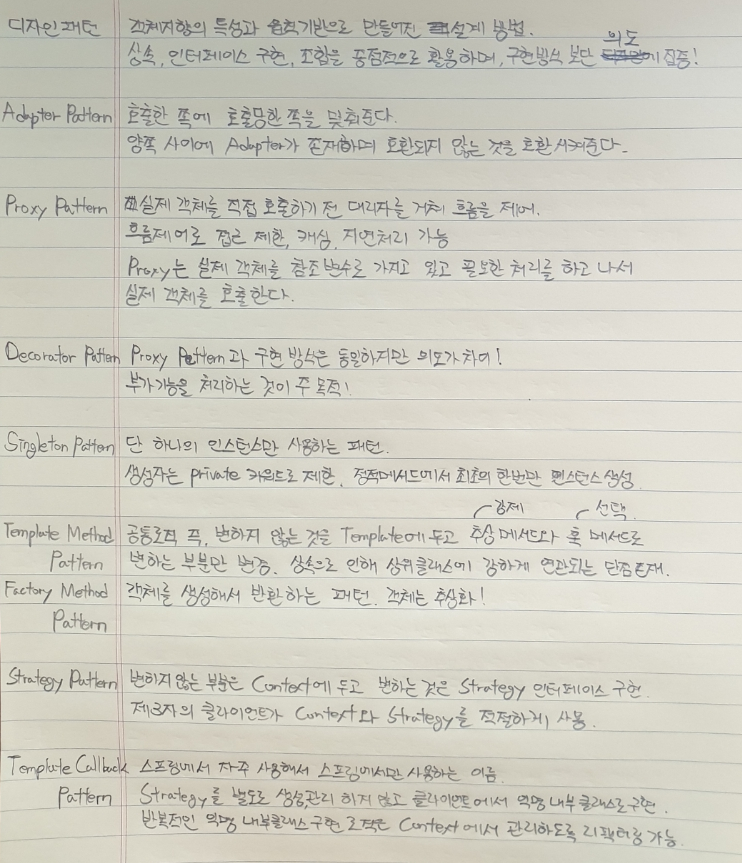 디자인패턴 객체지향의 특성과 원칙기반으로 만들어진 설계 방법.
의도
상속, 인터페이스 구현, 조합을 중점적으로 활용하며, 구현방식 보단 에 집중!
Adapter Pattern 호출한 쪽에 호출당한 쪽을 맞춰준다.
양쪽 사이에 Adapter가 존재하며 호환되지 않는 것을 호환 시켜준다.
Proxy Pattern 실제 객체를 직접 호출하기 전 대리자를 거쳐 흐름을 제어.
흐름제어로 접근 제한, 캐싱, 지연처리 가능
Proxy는 실제 객체를 참조변수로 가지고 있고 필요한 처리를 하고 나서
실제 객체를 호출한다.
Decorator Pattern Proxy Pattern과 구현 방식은 동일하지만 의도가 차이!
부가기능을 처리하는 것이 주 목적!
Singleton Pattern 단 하나의 인스턴스만 사용하는 패턴.
생성자는 private 키워드로 제한, 정적메서드에서 최초의 한번만 인스턴스 생성.
강제 선택
Template Method 공통로직 즉, 변하지 않는 것을 Template에 두고 추상 메서드와 훅 메서드로
Pattern 변하는 부분만 변경. 상속으로 인해 상위클래스에 강하게 연관되는 단점존재.
Factory Method 객체를 생성해서 반환하는 패턴. 객체는 추상화!
Pattern
Strategy Pattern 변하지 않는 부분은 Context에 두고 변하는 것은 Strategy 인터페이스 구현.
제3자의 클라이언트가 Context와 Strategy를 적절하게 사용.
Template Callback 스프링에서 자주 사용해서 스프링에서만 사용하는 이름.
Pattern Strategy를 별도로 생성관리 하지 않고 클라이언트에서 익명 내부 클래스로 구현.
반복적인 익명 내부클래스 구현 로직은 Context에서 관리하도록 리팩터링 가능.